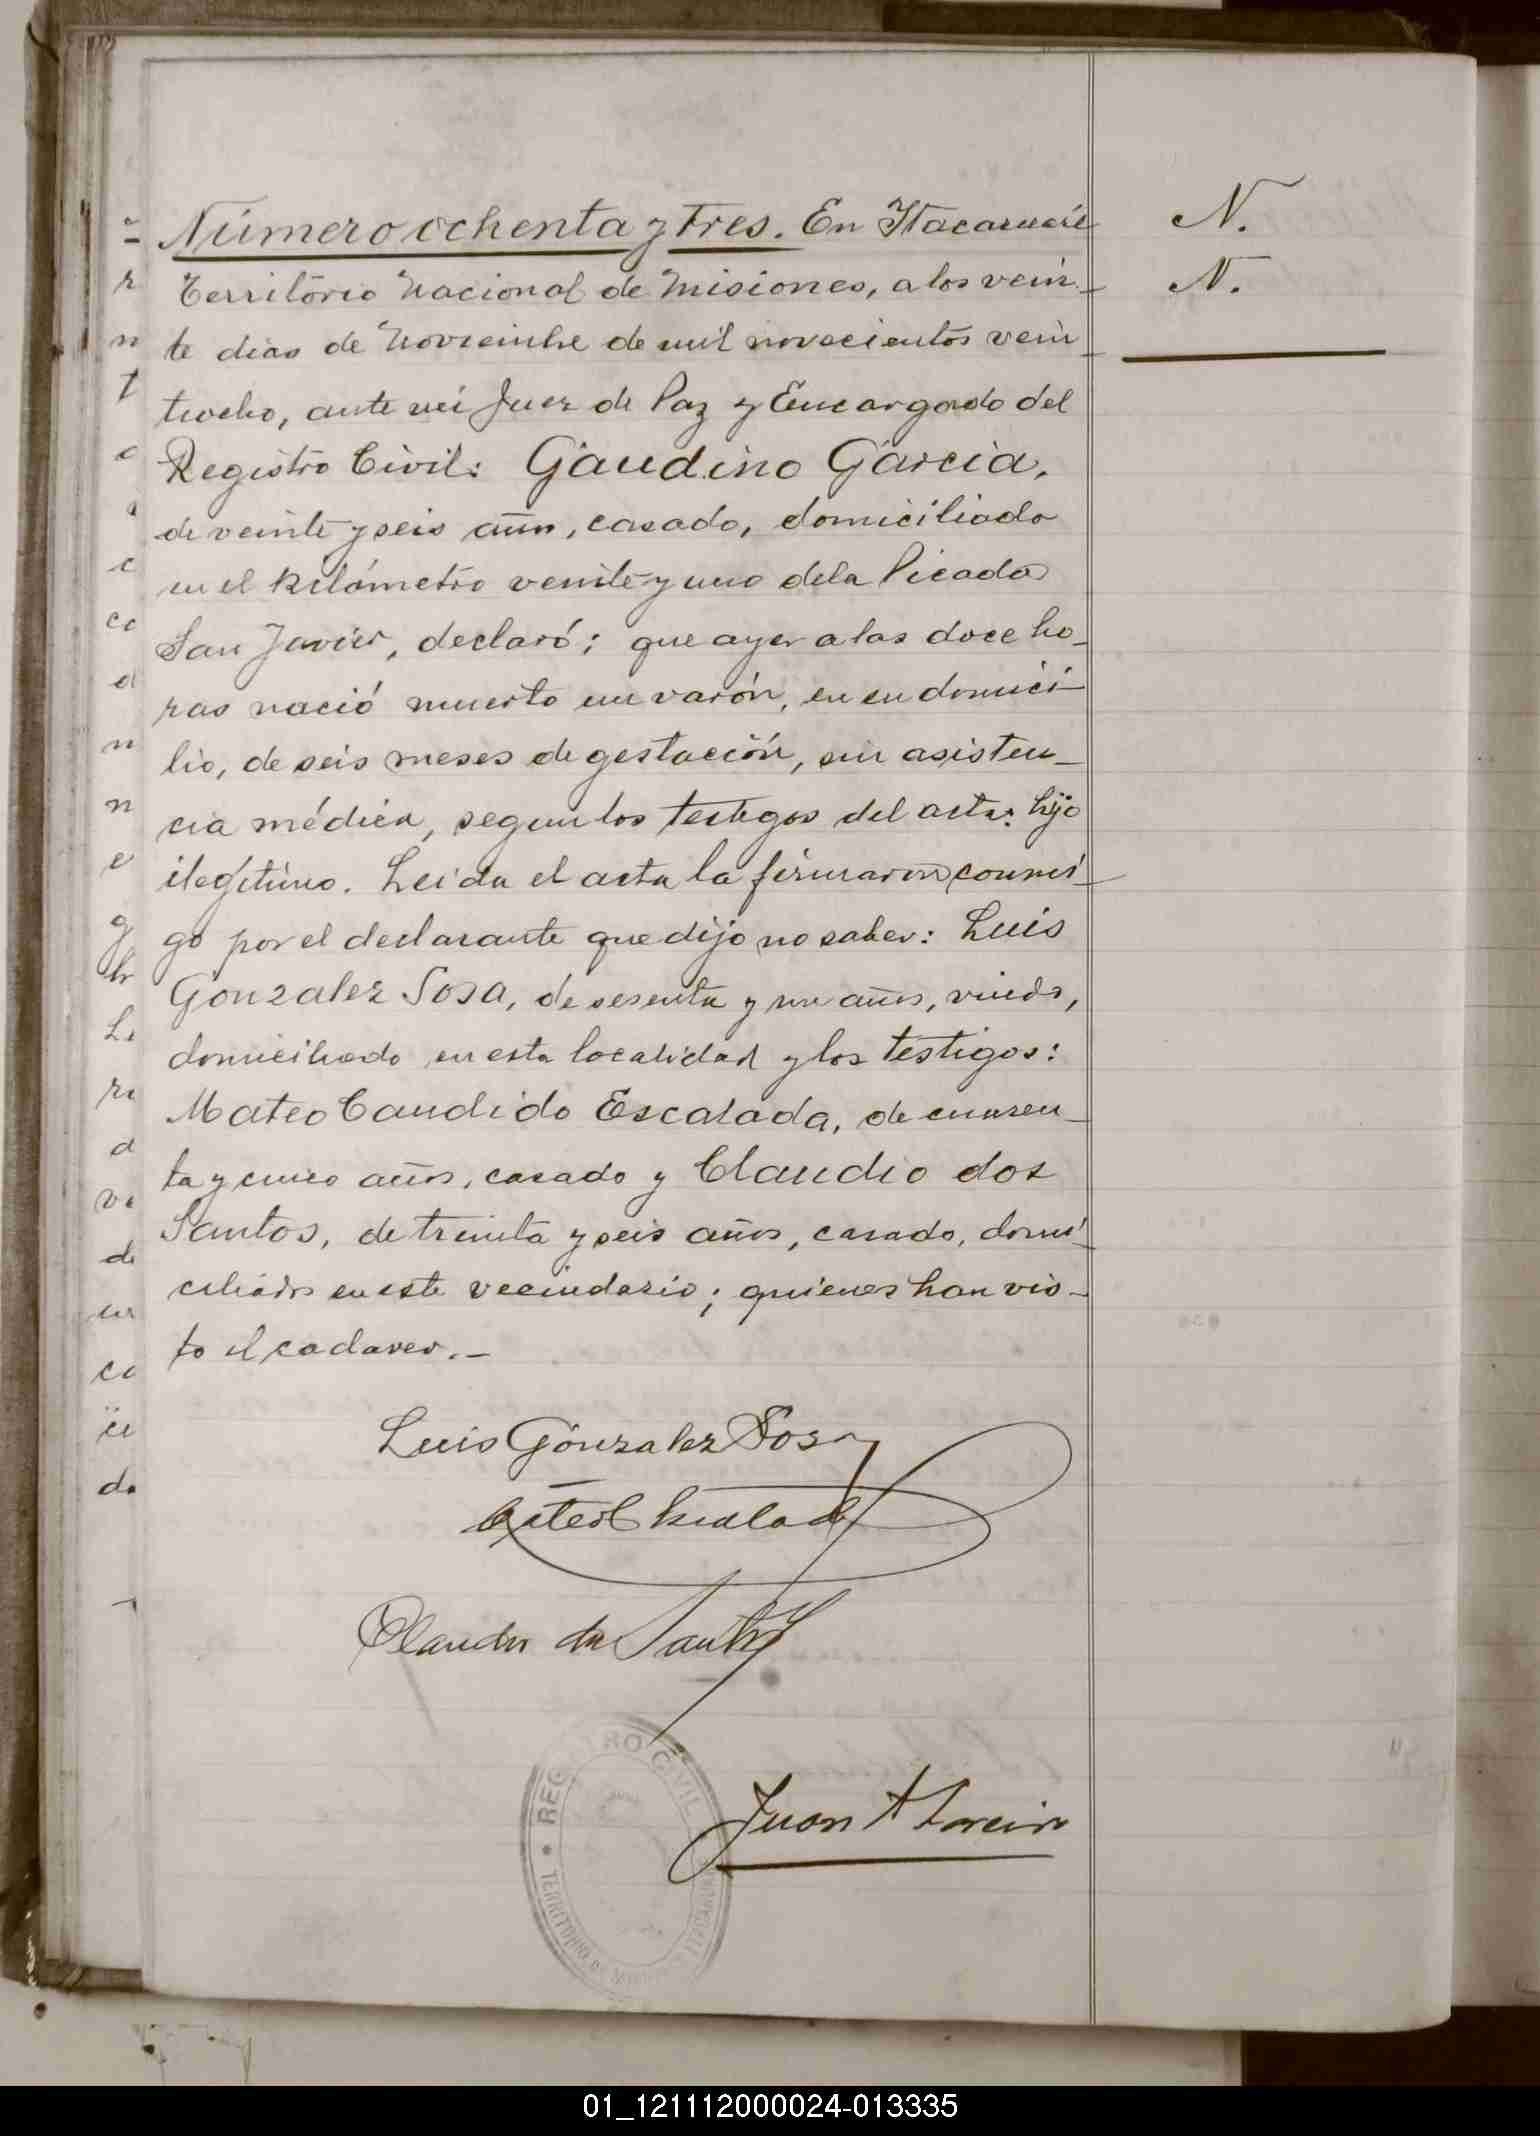 Número ochenta y tres. En Itacaruaré
N.
Territorio Nacional de Misiones, a los vein-
N.
te dias de Noviembre de mil novecientos vein-
tiocho, ante mi Juez de Paz y Encargado del
Registro Civil: Gaudino Garcia,
de veinte y seis años, casado, domiciliado
en el kilómetro veinte y uno dela Picada
San Javier, declaró; que ayer a las doce ho-
ras nació muerto un varón, en su domici-
lio, de seis meses de gestación, sin asisten-
cia médica, segun los testigos del acta: hijo
ilegítimo. Leida el acta la firmaron conmi-
go por el declarante que dijo no saber: Luis
Gonzalez Sosa, de sesenta y un años, viudo,
domiciliado en esta localidad y los testigos:
Mateo Candido Escalada, de cuaren-
ta y cinco años, casado y Claudio dos
Santos, de treinta y seis años, casado, domi-
ciliados en este vecindario; quienes han vis-
to el cadaver.-
Luis Gonzalez Sosa
Claudio do Santos
REGISTRO CIVIL
TERRITORIO
Juan A
01_121112000024-013335